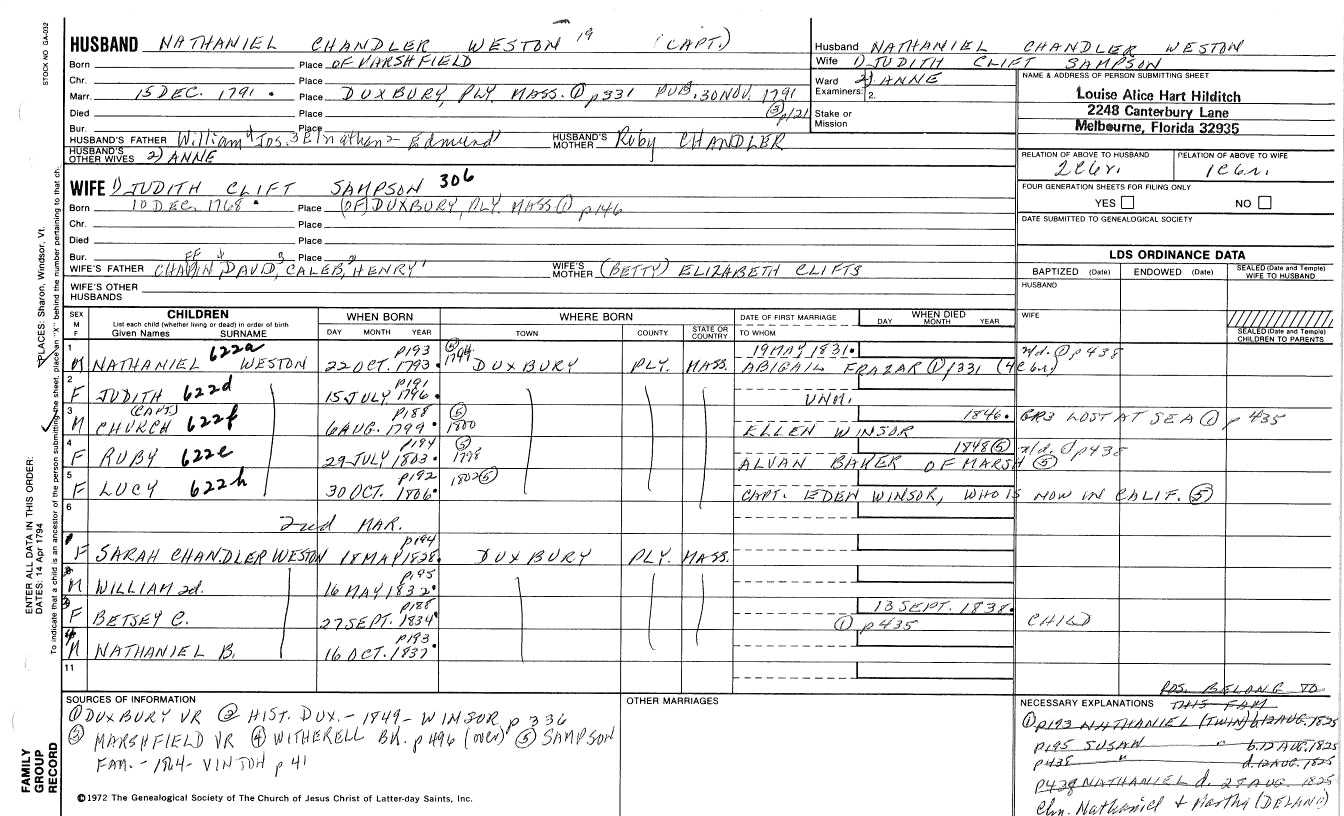 STOCK NO. GA-032
HUSBAND NATHANIEL CHANDLER WESTON 19 (CAPT.)
Born Place OF MARSHFIELD
Chr. Place
Marr. 15 DEC. 1791 Place DUXBURY, PLY. MASS. ① p331 PUB. 30 NOV. 1791
Died Place ③ p121
Bur. Place
HUSBAND'S FATHER William 4 Jos. 3 Elnathan 2 Edmund 1 HUSBAND'S MOTHER Ruby CHANDLER
HUSBAND'S OTHER WIVES 2) ANNE
Husband NATHANIEL CHANDLER WESTON
Wife 1) JUDITH CLIFT SAMPSON
Ward 2) ANNE
Examiners: 2.
Stake or Mission
NAME & ADDRESS OF PERSON SUBMITTING SHEET
Louise Alice Hart Hilditch
2248 Canterbury Lane
Melbourne, Florida 32935
RELATION OF ABOVE TO HUSBAND RELATION OF ABOVE TO WIFE
2C6r. 1C6r.
FOUR GENERATION SHEETS FOR FILING ONLY
YES NO
DATE SUBMITTED TO GENEALOGICAL SOCIETY
WIFE 1) JUDITH CLIFT SAMPSON 306
Born 10 DEC. 1768 Place (OF) DUXBURY, PLY. MASS ① p146
Chr. Place
Died Place
Bur. Place
WIFE'S FATHER DAVID, 3 CALEB, 2 HENRY 1 WIFE'S MOTHER (BETTY) ELIZABETH CLIFTS
WIFE'S OTHER HUSBANDS
LDS ORDINANCE DATA
BAPTIZED (Date) ENDOWED (Date) SEALED (Date and Temple) WIFE TO HUSBAND
HUSBAND
WIFE
SEALED (Date and Temple) CHILDREN TO PARENTS
SEX M F CHILDREN WHEN BORN WHERE BORN DATE OF FIRST MARRIAGE WHEN DIED
List each child (whether living or dead) in order of birth
Given Names SURNAME DAY MONTH YEAR TOWN COUNTY STATE OR COUNTRY TO WHOM DAY MONTH YEAR
1 622a p193 1794 19 MAY 1831
M NATHANIEL WESTON 22 OCT. 1793 DUXBURY PLY. MASS. ABIGAIL FRAZAR ① p331 (4C6r.) n/d. ① p438
2 p191
F JUDITH 622d 15 JULY 1796 UNM.
3 (CAPT) p188 ⑤ 1846
M CHURCH 622f 6 AUG. 1799 1800 ELLEN WINSOR GR3 LOST AT SEA ① p435
4 p194 ⑤ 1848 ⑤
F RUBY 622e 29 JULY 1803 1798 ALVAN BAKER OF MARSH ⑤ n/d. ① p438
5 p192 1802 ⑤
F LUCY 622h 30 OCT. 1806 CAPT. EDEN WINSOR, WHO IS NOW IN CALIF. ⑤
6
2nd MAR.
p194
F SARAH CHANDLER WESTON 18 MAY 1828 DUXBURY PLY. MASS.
p195
M WILLIAM 2d. 16 MAY 1832
3 p188 13 SEPT. 1838
F BETSEY C. 27 SEPT. 1834 ① p435 CHILD
4 p193
M NATHANIEL B. 16 OCT. 1837
11
SOURCES OF INFORMATION
① DUXBURY VR ② HIST. DUX. - 1849 - WINSOR p 336
③ MARSHFIELD VR ④ WITHERELL BK. p496 (OVER) ⑤ SAMPSON
FAM. - 1864 - VINTON p 41
OTHER MARRIAGES
NECESSARY EXPLANATIONS
BELONG TO
THIS FAM
① p193 NATHANIEL (TWIN) b. 12 AUG. 1825
p195 SUSAN " b. 12 AUG. 1825
p438 " d. 12 AUG. 1825
p438 NATHANIEL d. 28 AUG. 1825
Chn. Nathaniel & Martha (DELANO)
©1972 The Genealogical Society of The Church of Jesus Christ of Latter-day Saints, Inc.
FAMILY GROUP RECORD
ENTER ALL DATA IN THIS ORDER:
DATES: 14 Apr 1794
PLACES: Sharon, Windsor, Vt.
To indicate that a child is an ancestor of the person submitting the sheet, place an "X" behind the number pertaining to that ch.